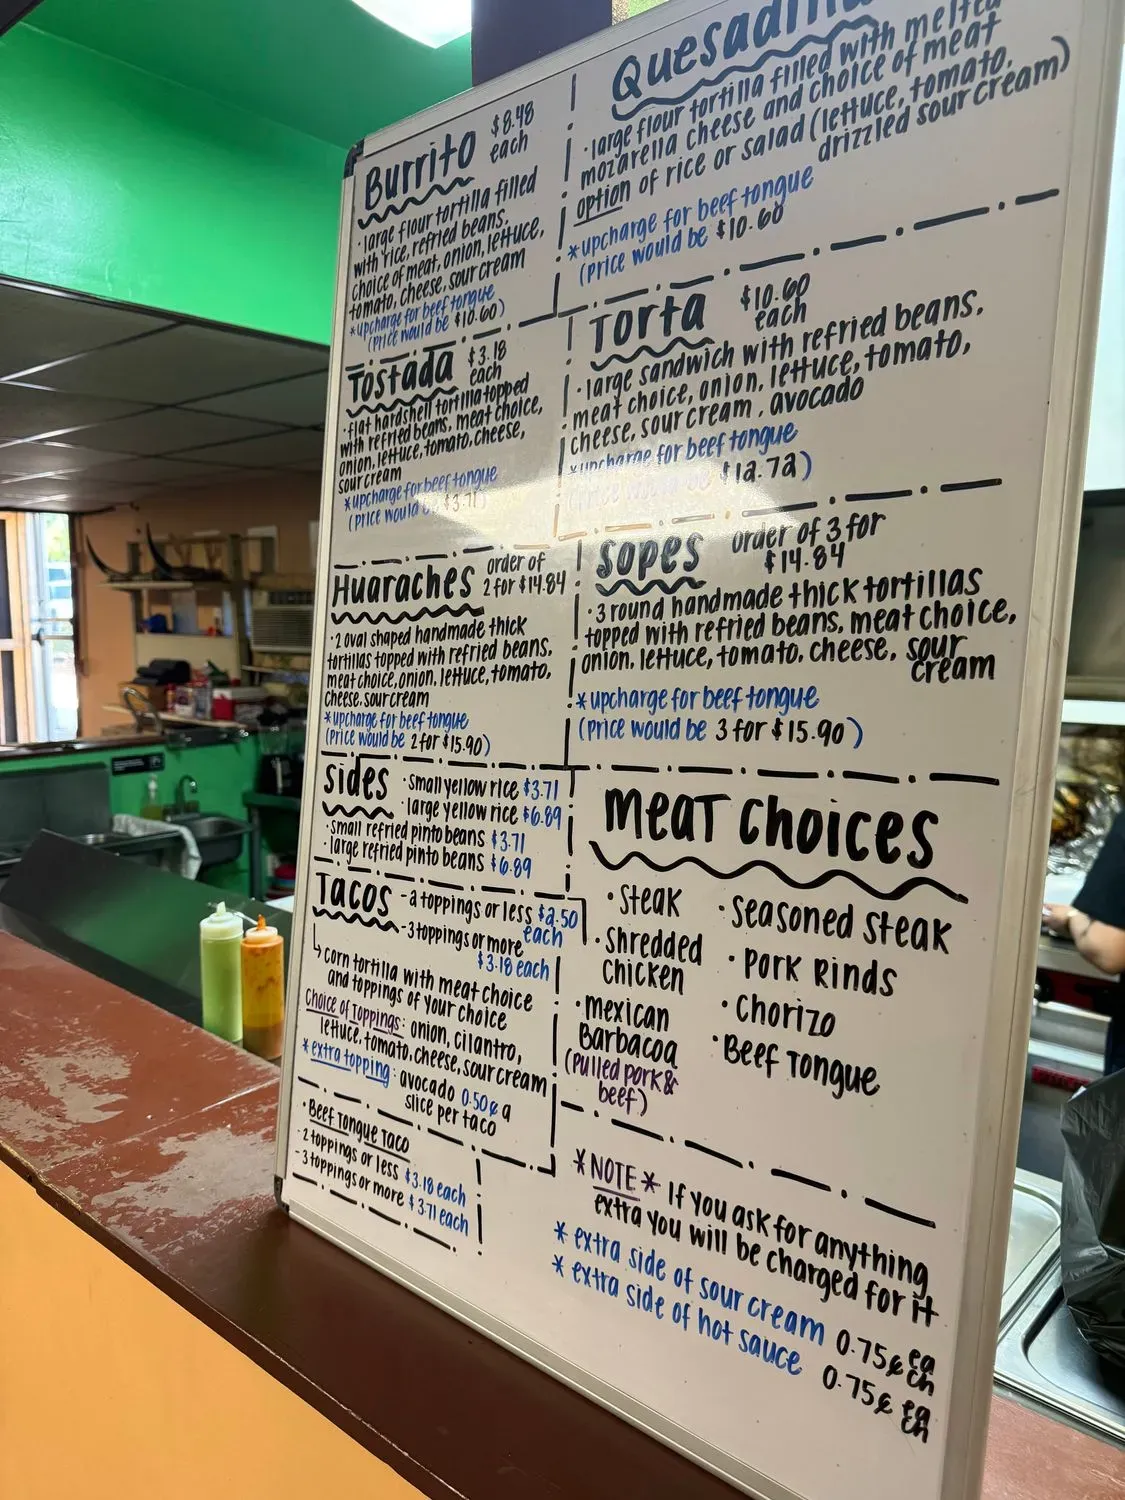 Burrito $8.48
each
·large flour tortilla filled
with rice, refried beans,
choice of meat, onion, lettuce,
tomato, cheese, sour cream
*upcharge for beef tongue
(price would be $10.60)
Tostada $3.18
each
·flat hardshell tortilla topped
with refried beans, meat choice,
onion, lettuce, tomato, cheese,
sour cream
*upcharge for beef tongue
(price would be $3.71)
Huaraches order of
2 for $14.84
·2 oval shaped handmade thick
tortillas topped with refried beans,
meat choice, onion, lettuce, tomato,
cheese, sour cream
*upcharge for beef tongue
(price would be 2 for $15.90)
Sides ·small yellow rice $3.71
·large yellow rice $6.89
·small refried pinto beans $3.71
·large refried pinto beans $6.89
Tacos -2 toppings or less $2.50
each
-3 toppings or more
$3.18 each
↳corn tortilla with meat choice
and toppings of your choice
Choice of toppings: onion, cilantro,
lettuce, tomato, cheese, sour cream
*extra topping: avocado 0.50¢ a
slice per taco
·Beef Tongue Taco
-2 toppings or less $3.18 each
-3 toppings or more $3.71 each
Quesadilla
·large flour tortilla filled with melted
mozarella cheese and choice of meat
option of rice or salad (lettuce, tomato,
drizzled sour cream)
*upcharge for beef tongue
(price would be $10.60
Torta $10.60
each
·large sandwich with refried beans,
meat choice, onion, lettuce, tomato,
cheese, sour cream, avocado
*upcharge for beef tongue
(price would be $12.72)
Sopes order of 3 for
$14.84
·3 round handmade thick tortillas
topped with refried beans, meat choice,
onion, lettuce, tomato, cheese, sour
cream
*upcharge for beef tongue
(price would be 3 for $15.90)
Meat Choices
·Steak
·Shredded
Chicken
·Mexican
Barbacoa
(Pulled pork &
beef)
·Seasoned Steak
·Pork Rinds
·Chorizo
·Beef Tongue
*NOTE* If you ask for anything
extra you will be charged for it
*extra side of sour cream 0.75¢ each
*extra side of hot sauce 0.75¢ each